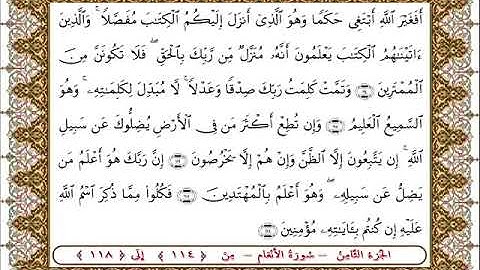 أَفَغَيْرَ ٱللَّهِ أَبْتَغِى حَكَمًا وَهُوَ ٱلَّذِىٓ أَنزَلَ إِلَيْكُمُ ٱلْكِتَٰبَ مُفَصَّلًا ۚ وَٱلَّذِينَ
ءَاتَيْنَٰهُمُ ٱلْكِتَٰبَ يَعْلَمُونَ أَنَّهُۥ مُنَزَّلٌ مِّن رَّبِّكَ بِٱلْحَقِّ ۖ فَلَا تَكُونَنَّ مِنَ
ٱلْمُمْتَرِينَ ﴿١١٤﴾ وَتَمَّتْ كَلِمَتُ رَبِّكَ صِدْقًا وَعَدْلًا ۚ لَّا مُبَدِّلَ لِكَلِمَٰتِهِۦ ۚ وَهُوَ
ٱلسَّمِيعُ ٱلْعَلِيمُ ﴿١١٥﴾ وَإِن تُطِعْ أَكْثَرَ مَن فِى ٱلْأَرْضِ يُضِلُّوكَ عَن سَبِيلِ
ٱللَّهِ ۚ إِن يَتَّبِعُونَ إِلَّا ٱلظَّنَّ وَإِنْ هُمْ إِلَّا يَخْرُصُونَ ﴿١١٦﴾ إِنَّ رَبَّكَ هُوَ أَعْلَمُ مَن
يَضِلُّ عَن سَبِيلِهِۦ ۖ وَهُوَ أَعْلَمُ بِٱلْمُهْتَدِينَ ﴿١١٧﴾ فَكُلُوا۟ مِمَّا ذُكِرَ ٱسْمُ ٱللَّهِ
عَلَيْهِ إِن كُنتُم بِـَٔايَٰتِهِۦ مُؤْمِنِينَ ﴿١١٨﴾
الجزء الثامن - سورة الأنعام - من ﴿ ١١٤ ﴾ إلى ﴿ ١١٨ ﴾